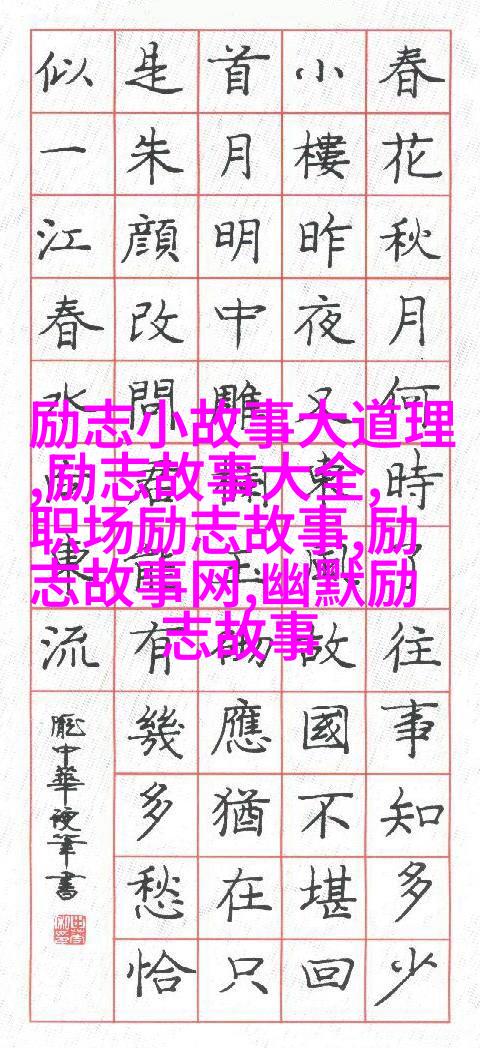 春花秋月何時了往事知多少
小樓昨夜又東風故國不堪回
首月明中雕闌玉砌應猶在只
是朱顔改問君能有幾多愁恰
似一江春水向東流
龐中華硬筆書
励志小故事大道理
,励志故事大全,
职场励志故事,励
志故事网,幽默励
志故事